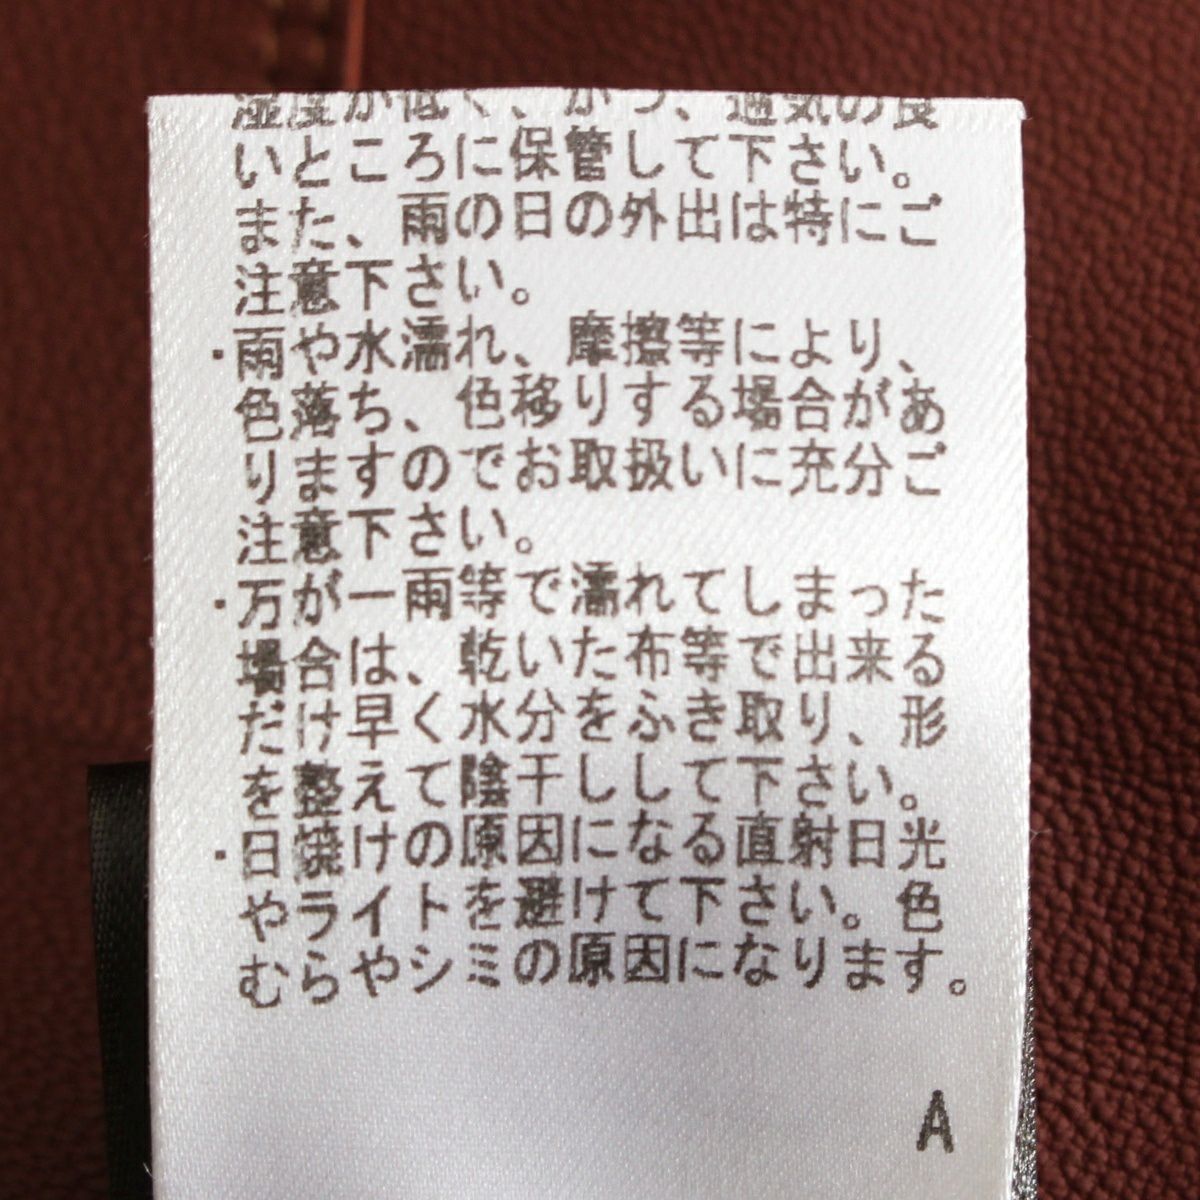 湿度が低く、かつ、通気の良
いところに保管して下さい。
また、雨の日の外出は特にご
注意下さい。
・雨や水濡れ、摩擦等により、
色落ち、色移りする場合があ
りますのでお取扱いに充分ご
注意下さい。
・万が一雨等で濡れてしまった
場合は、乾いた布等で出来る
だけ早く水分をふき取り、形
を整えて陰干しして下さい。
・日焼けの原因になる直射日光
やライトを避けて下さい。色
むらやシミの原因になります。
A